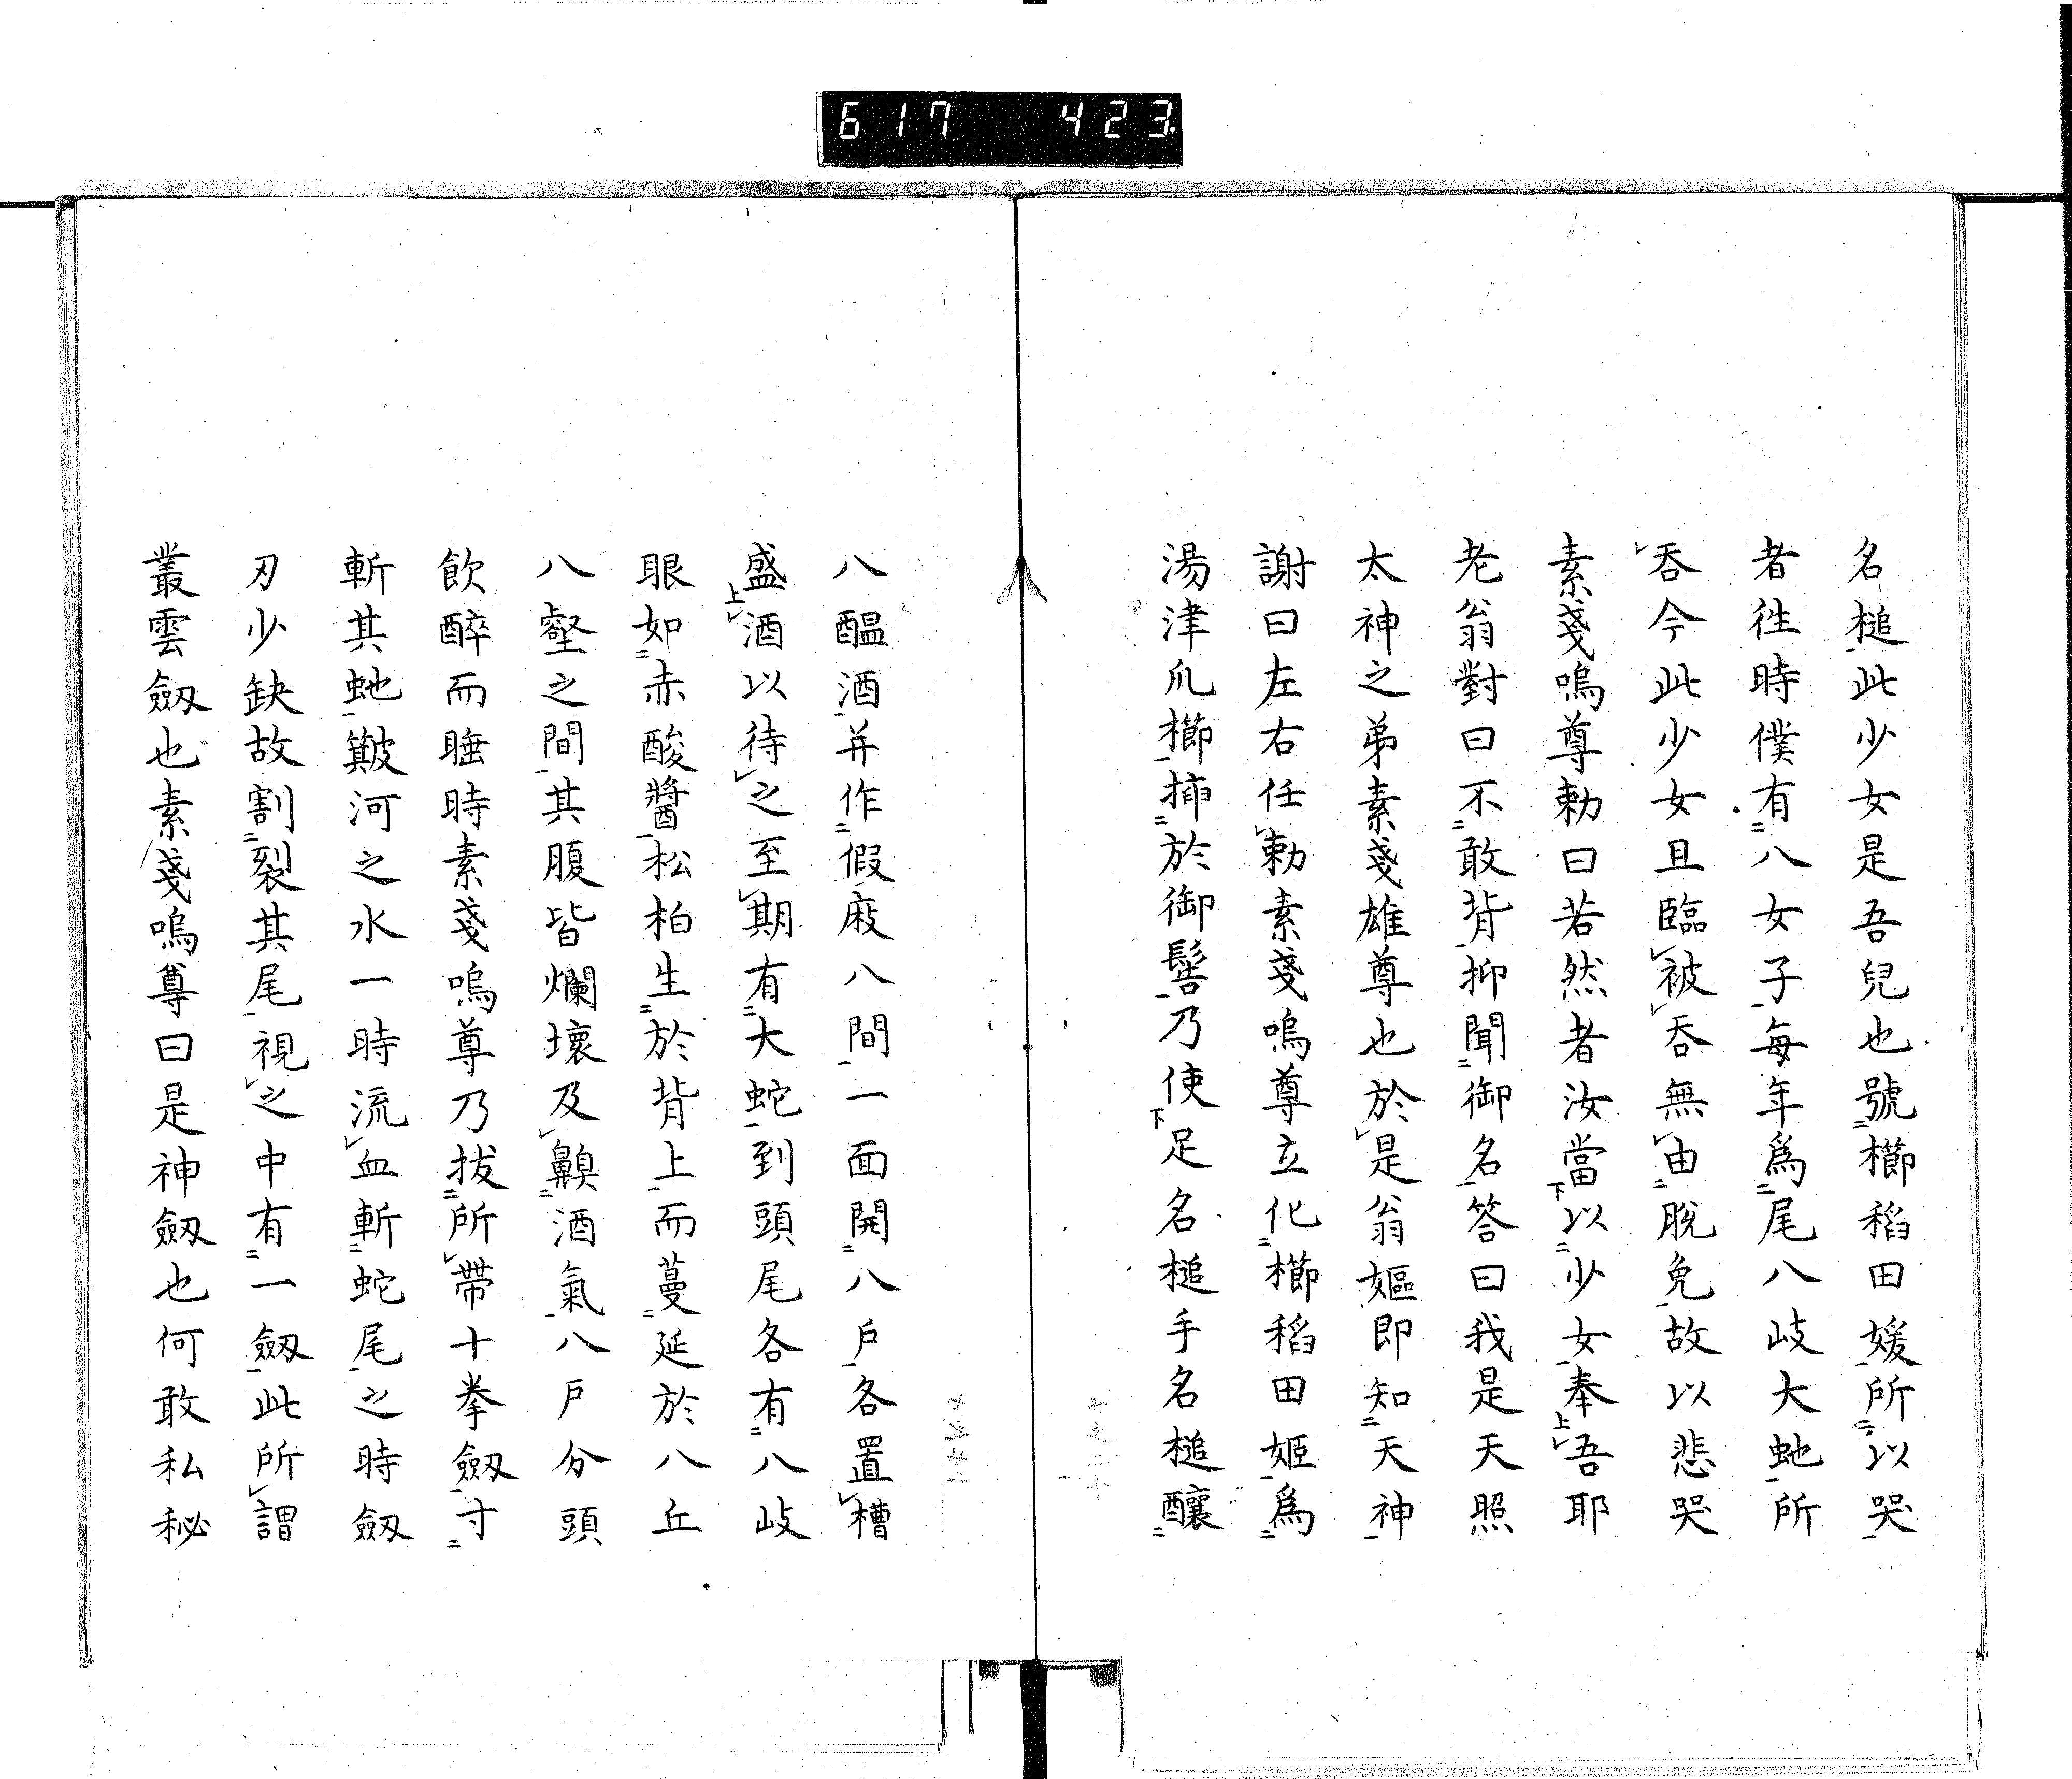 617 423
名槌此少女是吾兒也號櫛稻田媛所以哭
者徃時僕有八女子每年爲尾八岐大虵所
吞今此少女且臨被吞無由脫免故以悲哭
素戔嗚尊勅曰若然者汝當以少女奉吾耶
老翁對曰不敢背抑聞御名答曰我是天照
太神之弟素戔雄尊也於是翁嫗即知天神
謝曰左右任勅素戔嗚尊立化櫛稻田姬爲
湯津爪櫛揷於御髻乃使足名槌手名槌釀
八醞酒并作假庪八間一面開八戶各置槽
盛酒以待之至期有大蛇到頭尾各有八岐
眼如赤酸醬松柏生於背上而蔓延於八丘
八壑之間其腹皆爛壞及齅酒氣八戶分頭
飲醉而睡時素戔嗚尊乃拔所帶十拳劔寸
斬其虵簸河之水一時流血斬蛇尾之時劔
刃少缺故割裂其尾視之中有一劔此所謂
叢雲劔也素戔嗚尊曰是神劔也何敢私秘